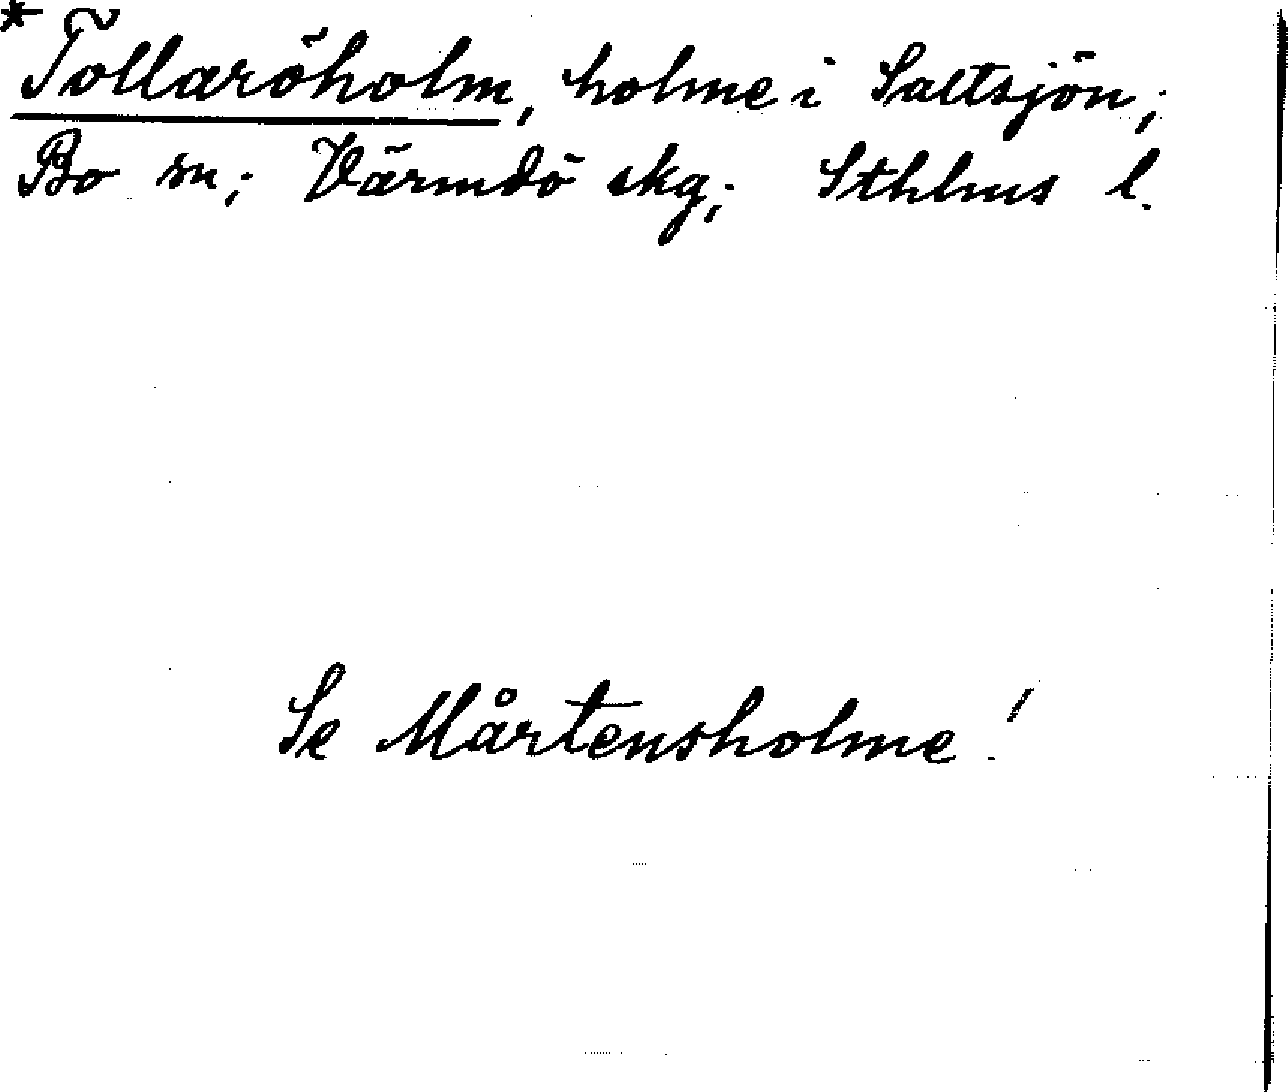 *Tollaröholm, holme i Saltsjön;
Bo sn; Värmdö skg; Sthlms l.
Se Mårtensholme!